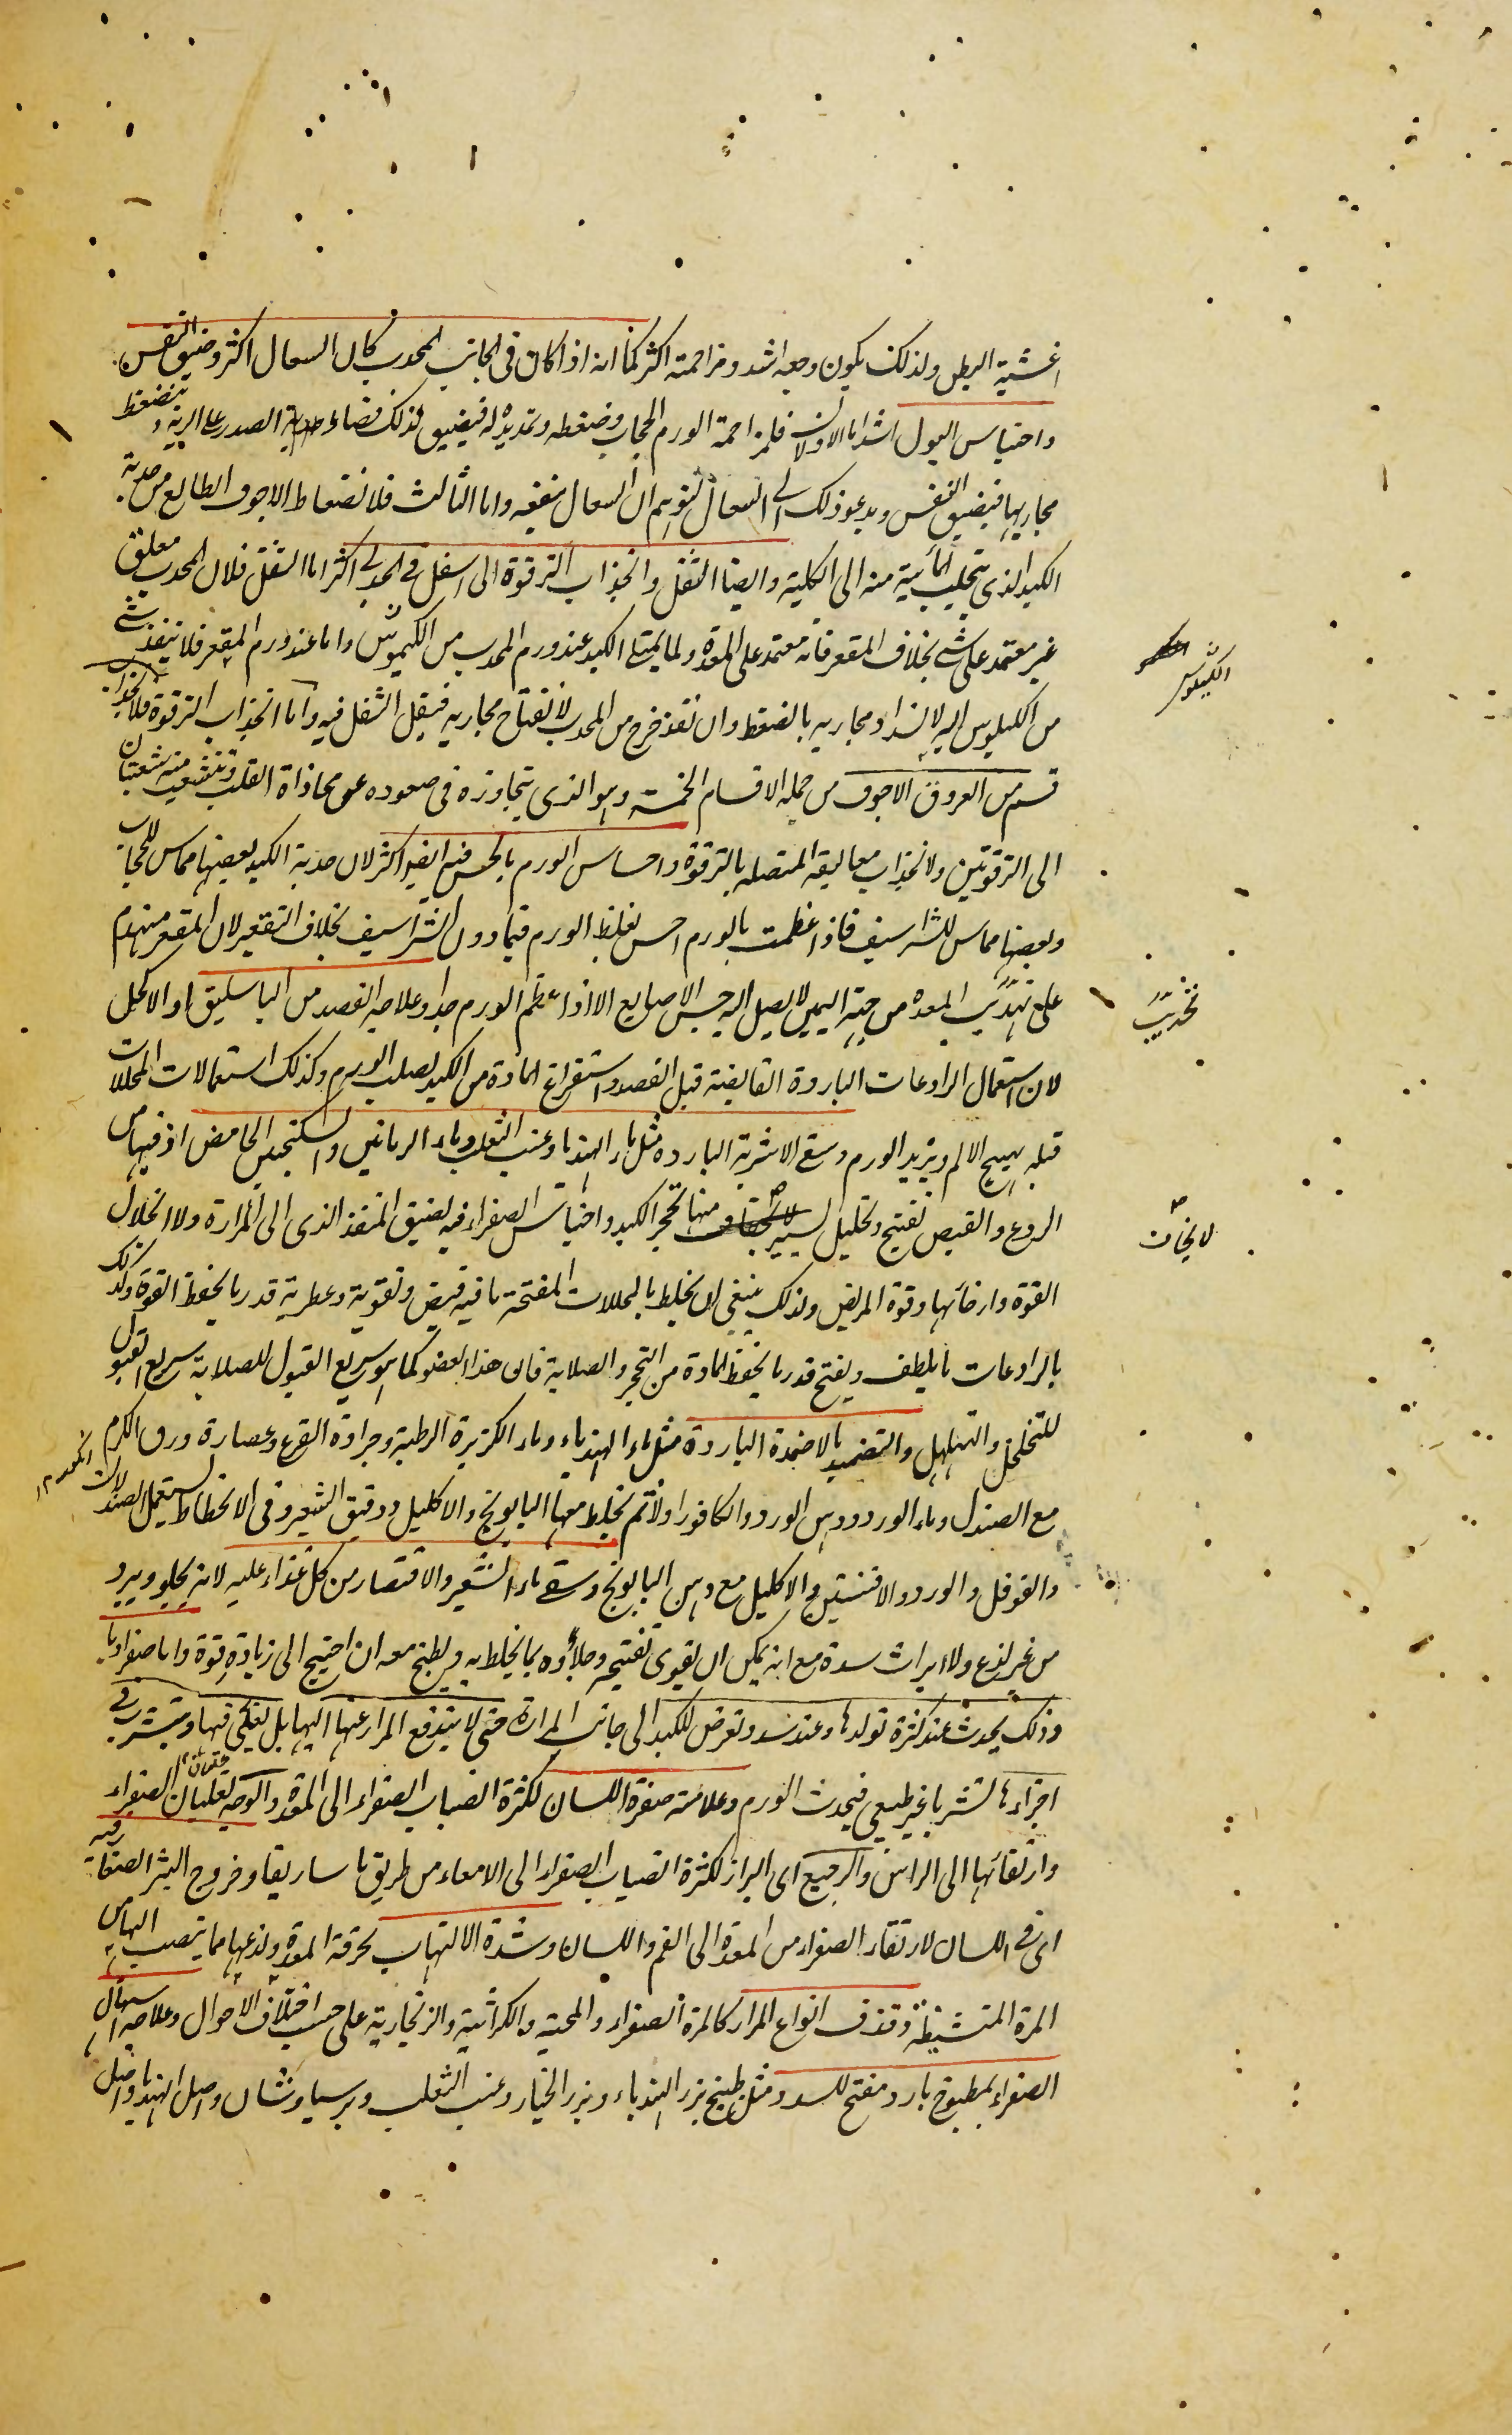 اغشية البطن ولذلك يكون وجعه اشد ومزاحمته اكثر كما انه اذا كان فى الجانب المحدب كان السعال اكثر وضيق النفس
واحتباس البول اشد اما الاولان فلمزاحمة الورم الحجاب وضغطه وتمديده له فيضيق لذلك فضاء الصدر على الرية وينضغط
مجاريها فيضيق النفس ويدعو ذلك الى السعال لتوهم ان السعال ينفعه واما الثالث فلانضغاط الاجوف الطالع من حدبة
الكبد الذى يتحلب المائية منه الى الكلية وايضا الثقل وانجذاب الترقوة الى اسفل فى الحدبى اكثر اما الثقل فلان المحدب معلق
غير معتمد على شى بخلاف المقعر فانه معتمد على المعدة ولما يمتلى الكبد عند ورم المحدب من الكيموس واما عند ورم المقعر فلا ينفذ شى
من الكيلوس اليه لانسداد مجاريه بالضغط وان نفذ خرج من المحدب لانفتاح مجاريه فيقل الثقل فيه واما انجذاب الترقوة فلانجذاب
قسم من العروق الاجوف من جملة الاقسام الخمسة وهو الذى يتجاوزه فى صعوده عن محاذاة القلب وتنشعب منه شعبتان
الى الترقوتين ولانجذاب معاليقه المتصلة بالترقوة واحساس الورم بالجس فيه ايضا اكثر لان حدبة الكبد بعضها مماس للحجاب
وبعضها مماس للشراسيف فاذا عظمت بالورم احس بغلظ الورم فيما دون الشراسيف بخلاف التقعير لان المقعر منهدم
على تحديب المعدة من جهة اليمين لا يصل اليه جس الاصابع الا اذا عظم الورم جدا وعلاجه الفصد من الباسليق او الاكحل
لان استعمال الرادعات الباردة القابضة قبل الفصد واستفراغ المادة من الكبد يصلب الورم وكذلك استعمالات المحللات
قبله يهيج الالم ويزيد الورم وسقى الاشربة الباردة مثل ماء الهندباء وعنب الثعلب وماء الرمانين والسكنجبين الحامض اذ فيها من
الردع والقبض تفتيح وتحليل يسير منها تحجر الكبد واحتباس الصفراء فيه لضيق المنفذ الذى الى المرارة ولا انحلال
القوة وارخائها وقوة المرض ولذلك ينبغى ان يخلط بالمحللات المفتحة ما فيه قبض وتقوية وعطرية قدر ما يحفظ القوة وكذلك
بالرادعات ما يلطف ويفتح قدر ما يحفظ المادة من التحجر والصلابة فان هذا العضو كما هو سريع القبول للصلابة سريع القبول
للتخلخل والتهلهل والتضميد بالاضمدة الباردة مثل ماء الهندباء وماء الكزبرة الرطبة وجرادة القرع وعصارة ورق الكرم
مع الصندل وماء الورد ودهن الورد والكافور اولا ثم يخلط معها البابونج والاكليل ودقيق الشعير وفى الانحطاط يستعمل الصندلان
والفوفل والورد والافسنتين والاكليل مع دهن البابونج وسقى ماء الشعير والاقتصار من كل غذاء عليه لانه يجلو ويبرد
من غير لذع ولا ايراث سدة مع انه يمكن ان يقوى تفتيحه وجلاؤه بما يخلط به ويطبخ معه ان احتيج الى زيادة قوة واما صفراويا
وذلك يحدث عند كثرة تولدها وعند سدد تعرض للكبد الى جانب المرارة حتى لا يندفع المرار عنها اليها بل يبقى فيها ويتشرب فى
اجزاءها تشربا غير طبيعى فيحدث الورم وعلامته صفرة اللسان لكثرة انصباب الصفراء الى المعدة والوجه لغليان الصفراء
وارتقائها الى الراس والرجيع اى البراز لكثرة انصباب الصفراء الى الامعاء من طريق ماساريقا وخروج البثر الصغار فيه
اى فى اللسان لارتقاء الصفراء من المعدة الى الفم واللسان وشدة الالتهاب لحرقة المعدة ولذعها مما ينصب اليها من
المرة المتشيطة وقذف انواع المرار كالمرة الصفراء والمحية والكراثية والزنجارية على حسب اختلاف الاحوال وعلاجه اسهال
الصفراء بمطبوخ بارد مفتح للسدد مثل طبيخ بزر الهندباء وبزر الخيار وعنب الثعلب وبرسياوشان واصل الهندباء واصل
الكيلوس
تحديب
لا يخاف